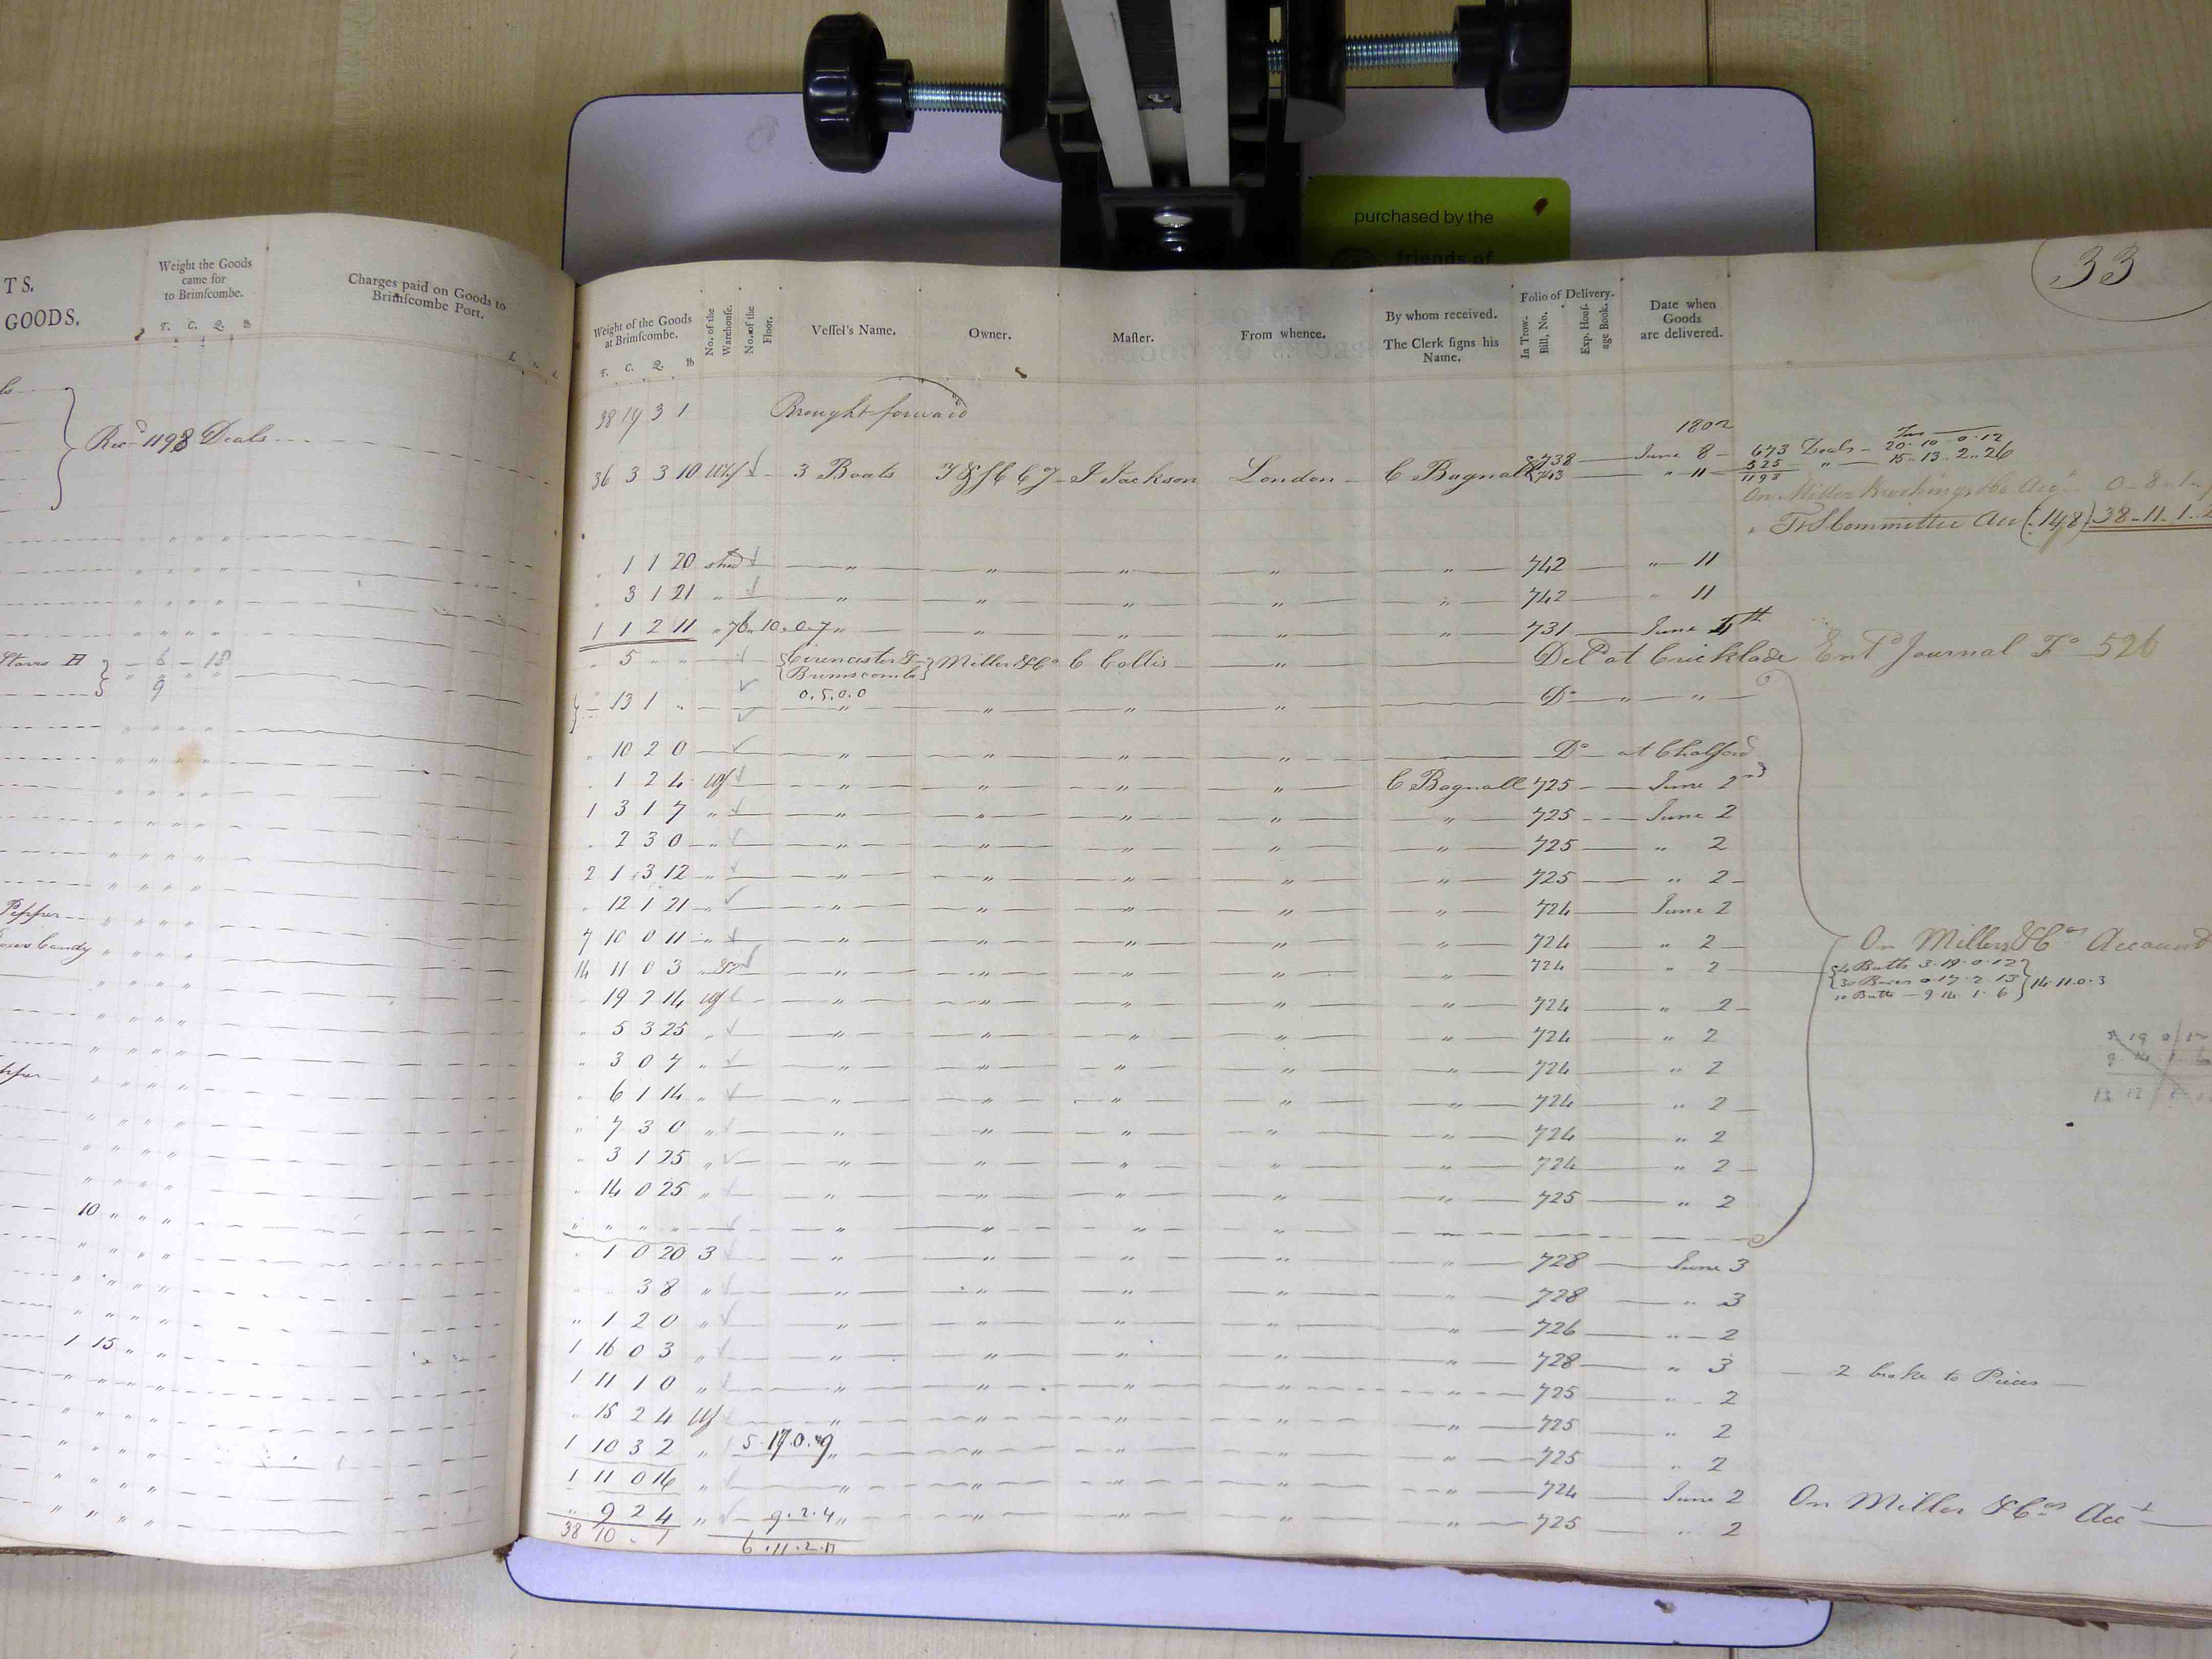 purchased by the
friends of
33
TS.
GOODS.
Weight the Goods
came for
to Brimscombe.
T. C. Q. lb
Charges paid on Goods to
Brimscombe Port.
£ s. d.
Rec^d 1198 Deals
Staves
6 - 18
9
Pepper
Candy
10 " " "
1 15 " "
Weight of the Goods
at Brimscombe.
T. C. Q. lb
No. of the
Warehouse.
No. of the
Floor.
Vessel's Name.
Owner.
Master.
From whence.
By whom received.
The Clerk signs his
Name.
Folio of Delivery.
In Trow.
Bill, No.
Exp. Housage Book.
Date when
Goods
are delivered.
38 19 3 1 Brought forward
1802
36 3 3 10 Whf 3 Boats J Jackson London C Bagnall 738 June 8 673 Deals 20.10.0.12
743 " 11 525 " 15..13..2..26
1198
On Miller Acc
Committee Acc (148) 38-11-1.2
" 1 1 20 shed " " " " " 742 " 11
" 3 1 21 " " " " " " 742 " 11
1 1 2 11 " 76..10.0.7 " " " " " 731 June
" 5 " " Cirencester & Brimscombe Miller & Co C Collis " Del^d at Cricklade Ent^d Journal F^o 526
0.5.0.0
13 1 " " " " " D^o " "
" 10 2 0 " " " " D^o at Chalford
" 1 2 4 Wf " " " " C Bagnall 725 June 2nd
1 3 1 7 " " " " " " 725 June 2
" 2 3 0 " " " " " " 725 " 2
2 1 3 12 " " " " " " 725 " 2
" 12 1 21 " " " " " " 724 June 2
7 10 0 11 " " " " " " 724 " 2
On Millers & Co^s Account
14 11 0 3 " &2 " " " " " 724 " 2
4 Butts 3.19.0.12
30 Boxes 0.17.2.13
10 Butts 9 14.1.6
14.11.0.3
" 19 2 14 Wf " " " " " 724 " 2
" 5 3 25 " " " " " " 724 " 2
" 3 0 7 " " " " " " 724 " 2
" 6 1 14 " " " " " " 724 " 2
" 7 3 0 " " " " " " 724 " 2
" 3 1 25 " " " " " " 724 " 2
" 14 0 25 " " " " " " 725 " 2
" " " " " " " "
" 1 0 20 3 " " " " " 728 June 3
" " 3 8 " " " " " " 728 " 3
" 1 2 0 " " " " " " 726 " 2
1 16 0 3 " " " " " " 728 " 3 2 broke to Pieces
1 11 1 0 " " " " " " 725 " 2
" 15 2 4 Wf " " " " " 725 " 2
1 10 3 2 " 5.17.0.9 " " " " " 725 " 2
1 11 0 16 " " " " " 724 June 2 On Miller & Co^s Acc^t
" 9 2 4 " 9.2.4 " " " " " 725 " 2
38 10 . 1 6.11.2.11